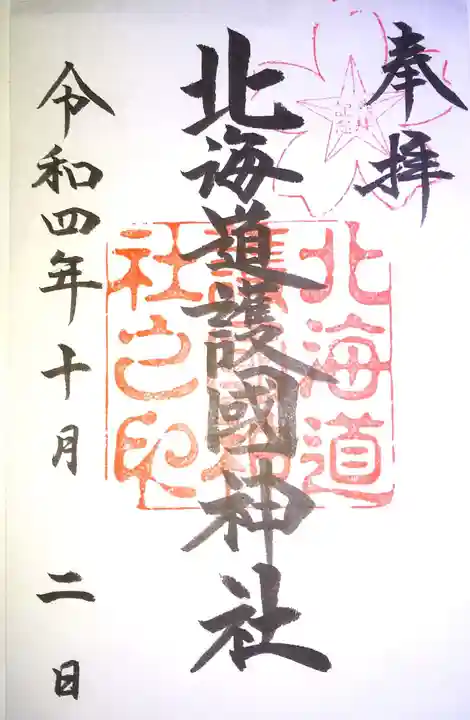 奉拝
北海道護國神社
北海道
護國神
社之印
令和四年十月 二日